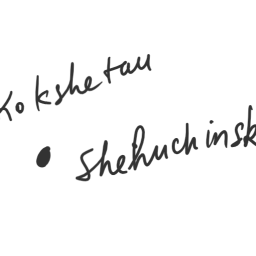 Kokshetau
Shchuchinsk